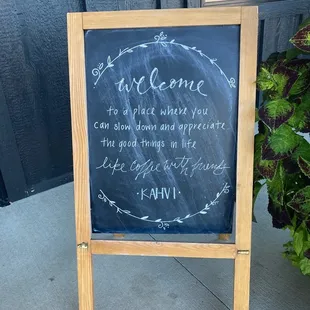 welcome
to a place where you
can slow down and appreciate
the good things in life
like coffee with friends
· KAHVI ·